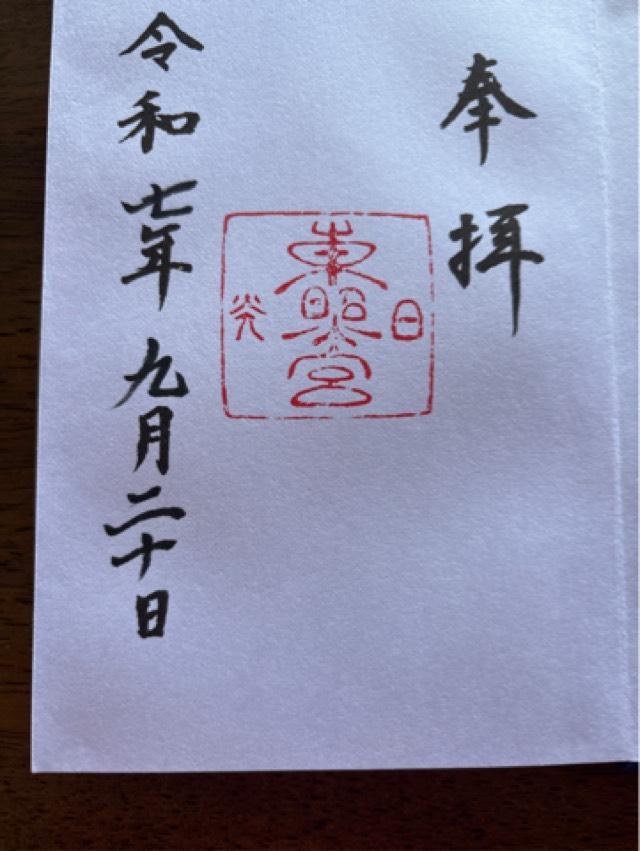 奉拝
日
東照宮
光
令和七年九月二十日